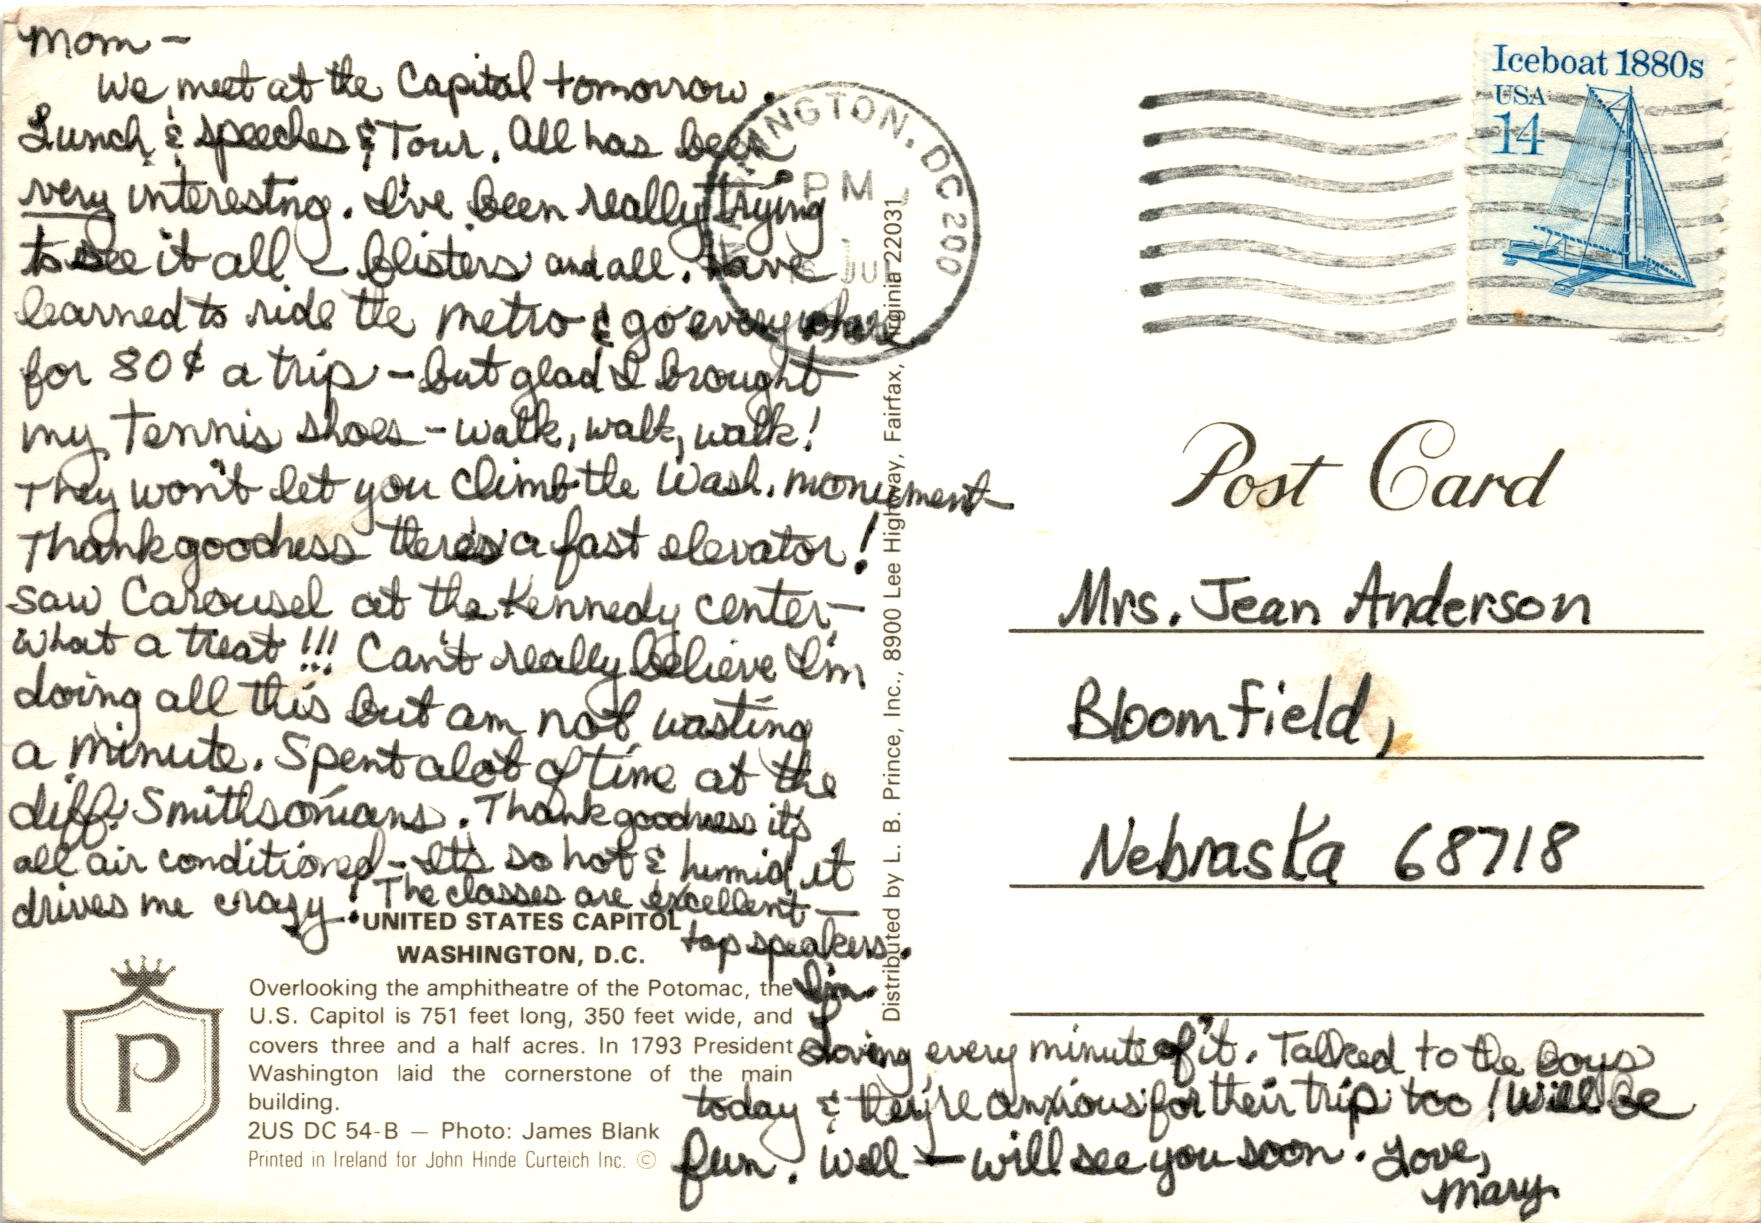 Mom –
We meet at the Capital tomorrow.
Lunch & speeches & Tour. All has been
very interestng. I've been really trying
to see it all – blisters and all. Have
learned to ride the metro & go everywhere
for 80¢ a trip – but glad I brought
my Tennis shoes – walk, walk, walk!
They won't let you climb the Wash. monument
Thank goodness there's a fast elevator!
Saw Carousel at the Kennedy center –
What a treat!!! Can't really believe I'm
doing all this but am not wasting
a minute. Spent alot of time at the
diff. Smithsonians. Thank goodness it's
all air conditioned – It's so hot & humid it
drives me crazy! The classes are excellent –
top speakers.
I'm
Loving every minute of it. Talked to the boys
today & they're anxious for their trip too! Will be
fun. Well – will see you soon. Love,
Mary
UNITED STATES CAPITOL
WASHINGTON, D.C.
Overlooking the amphitheatre of the Potomac, the
U.S. Capitol is 751 feet long, 350 feet wide, and
covers three and a half acres. In 1793 President
Washington laid the cornerstone of the main
building.
2US DC 54-B — Photo: James Blank
Printed in Ireland for John Hinde Curteich Inc. ©
P
Distributed by L. B. Prince, Inc., 8900 Lee Highway, Fairfax, Virginia 22031
WASHINGTON, DC 200
PM
JU
Iceboat 1880s
USA
14
Post Card
Mrs. Jean Anderson
Bloomfield,
Nebraska 68718